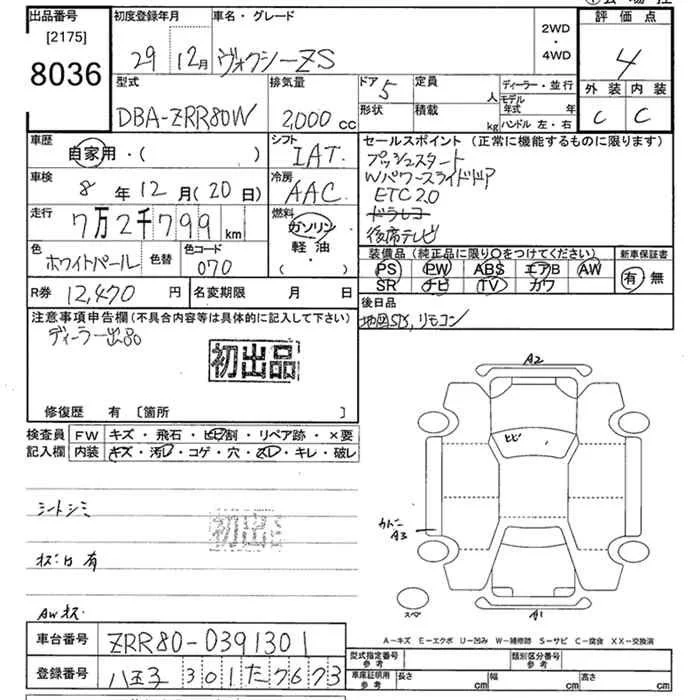 出品番号
[2175]
8036
初度登録年月
29 12月
車名・グレード
ヴォクシーZS
2WD
・
4WD
評価点
4
外装 内装
C C
型式
DBA-ZRR80W
排気量
2,000 cc
ドア 5
定員 人
形状
積載 kg
ディーラー・並行
モデル年式 年
ハンドル 左・右
車歴
自家用・( )
シフト
IAT
セールスポイント(正常に機能するものに限ります)
プッシュスタート
Wパワースライドドア
ETC2.0
ドラレコ
後席テレビ
車検
8年12月(20日)
冷房
AAC
走行
7万2千799km
燃料
ガソリン
軽油・
( )
色
ホワイトパール
色替
色コード
070
装備品(純正品に限り○をつけてください)
PS PW ABS エアB AW
SR ナビ TV カワ
新車保証書
有 無
R券 12,470 円
名変期限 月 日
後日品
地図SD, リモコン
注意事項申告欄(不具合内容等は具体的に記入して下さい)
ディーラー出品
初出品
修復歴 有 〔箇所 〕
検査員 FW キズ・飛石・ヒビ割・リペア跡・×要
記入欄 内装 キズ・汚レ・コゲ・穴・スレ・キレ・破レ
シートシミ
初出品
キズ凹有
AWキズ
A2
ヒビ
カドー
A3
スペア
A1
A-キズ E-エクボ U-凹み W-補修跡 S-サビ C-腐食 XX-交換済
車台番号 ZRR80-0391301
登録番号 八王子 301 た 7673
型式指定番号
参考
類別区分番号
参考
車庫証明用
参考
長さ cm
幅 cm
高さ cm